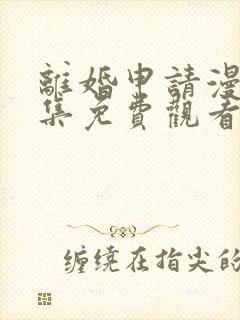 離婚申請漫
集免費觀看
缠绕在指尖的